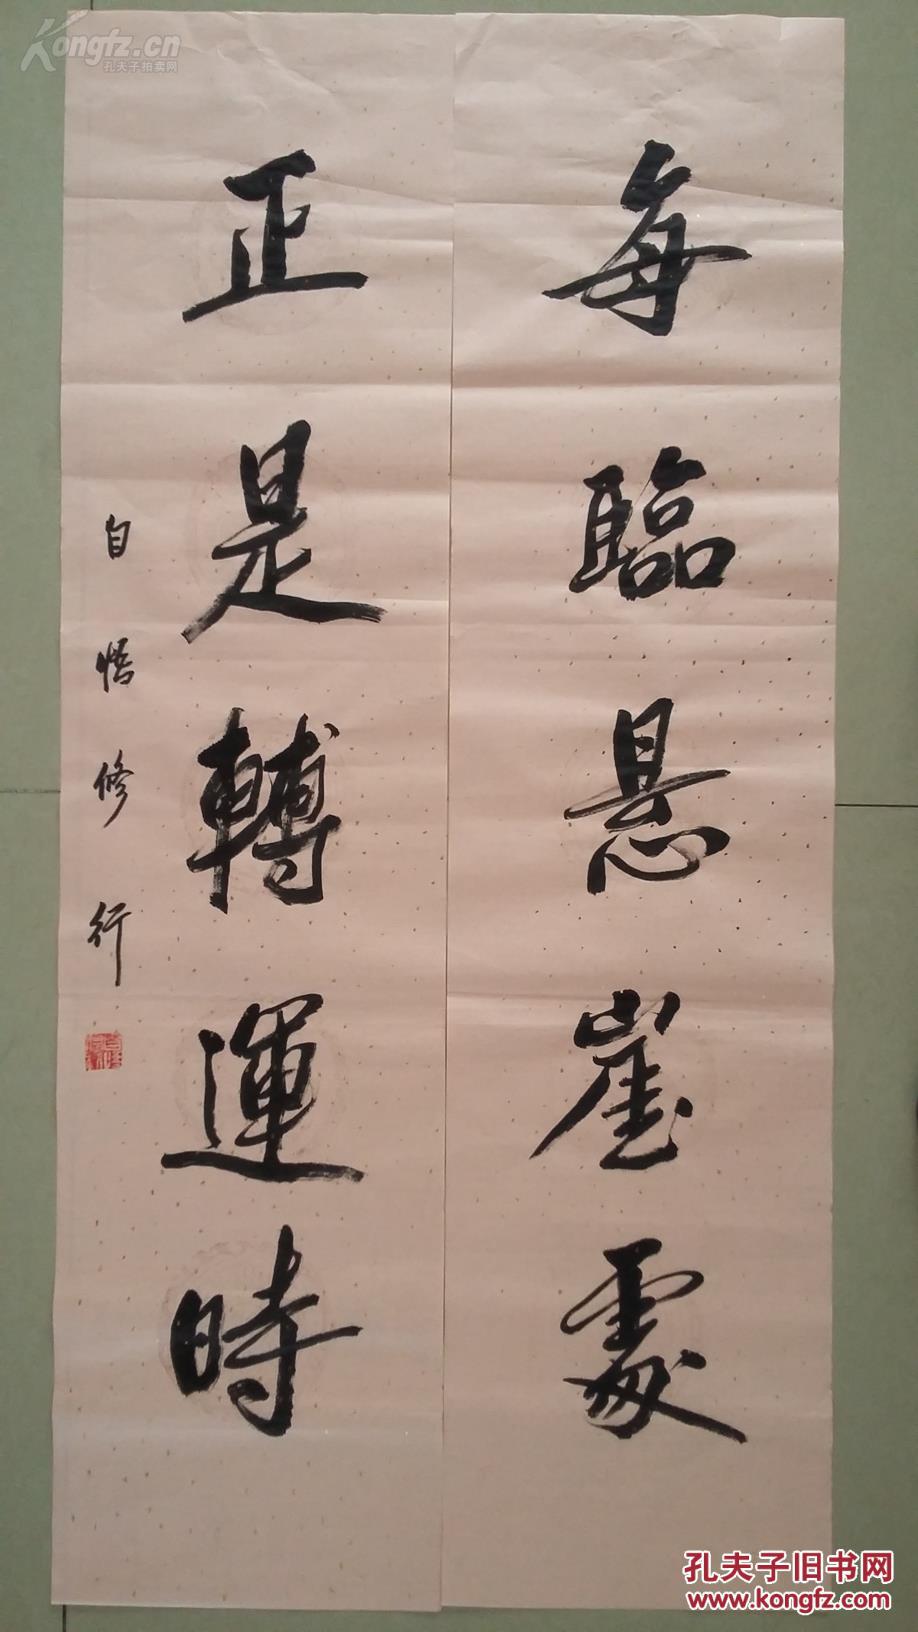 每臨悬崖處
正是轉運時
自悟修行
Kongfz.cn
孔夫子拍卖网
孔夫子旧书网
www.kongfz.com